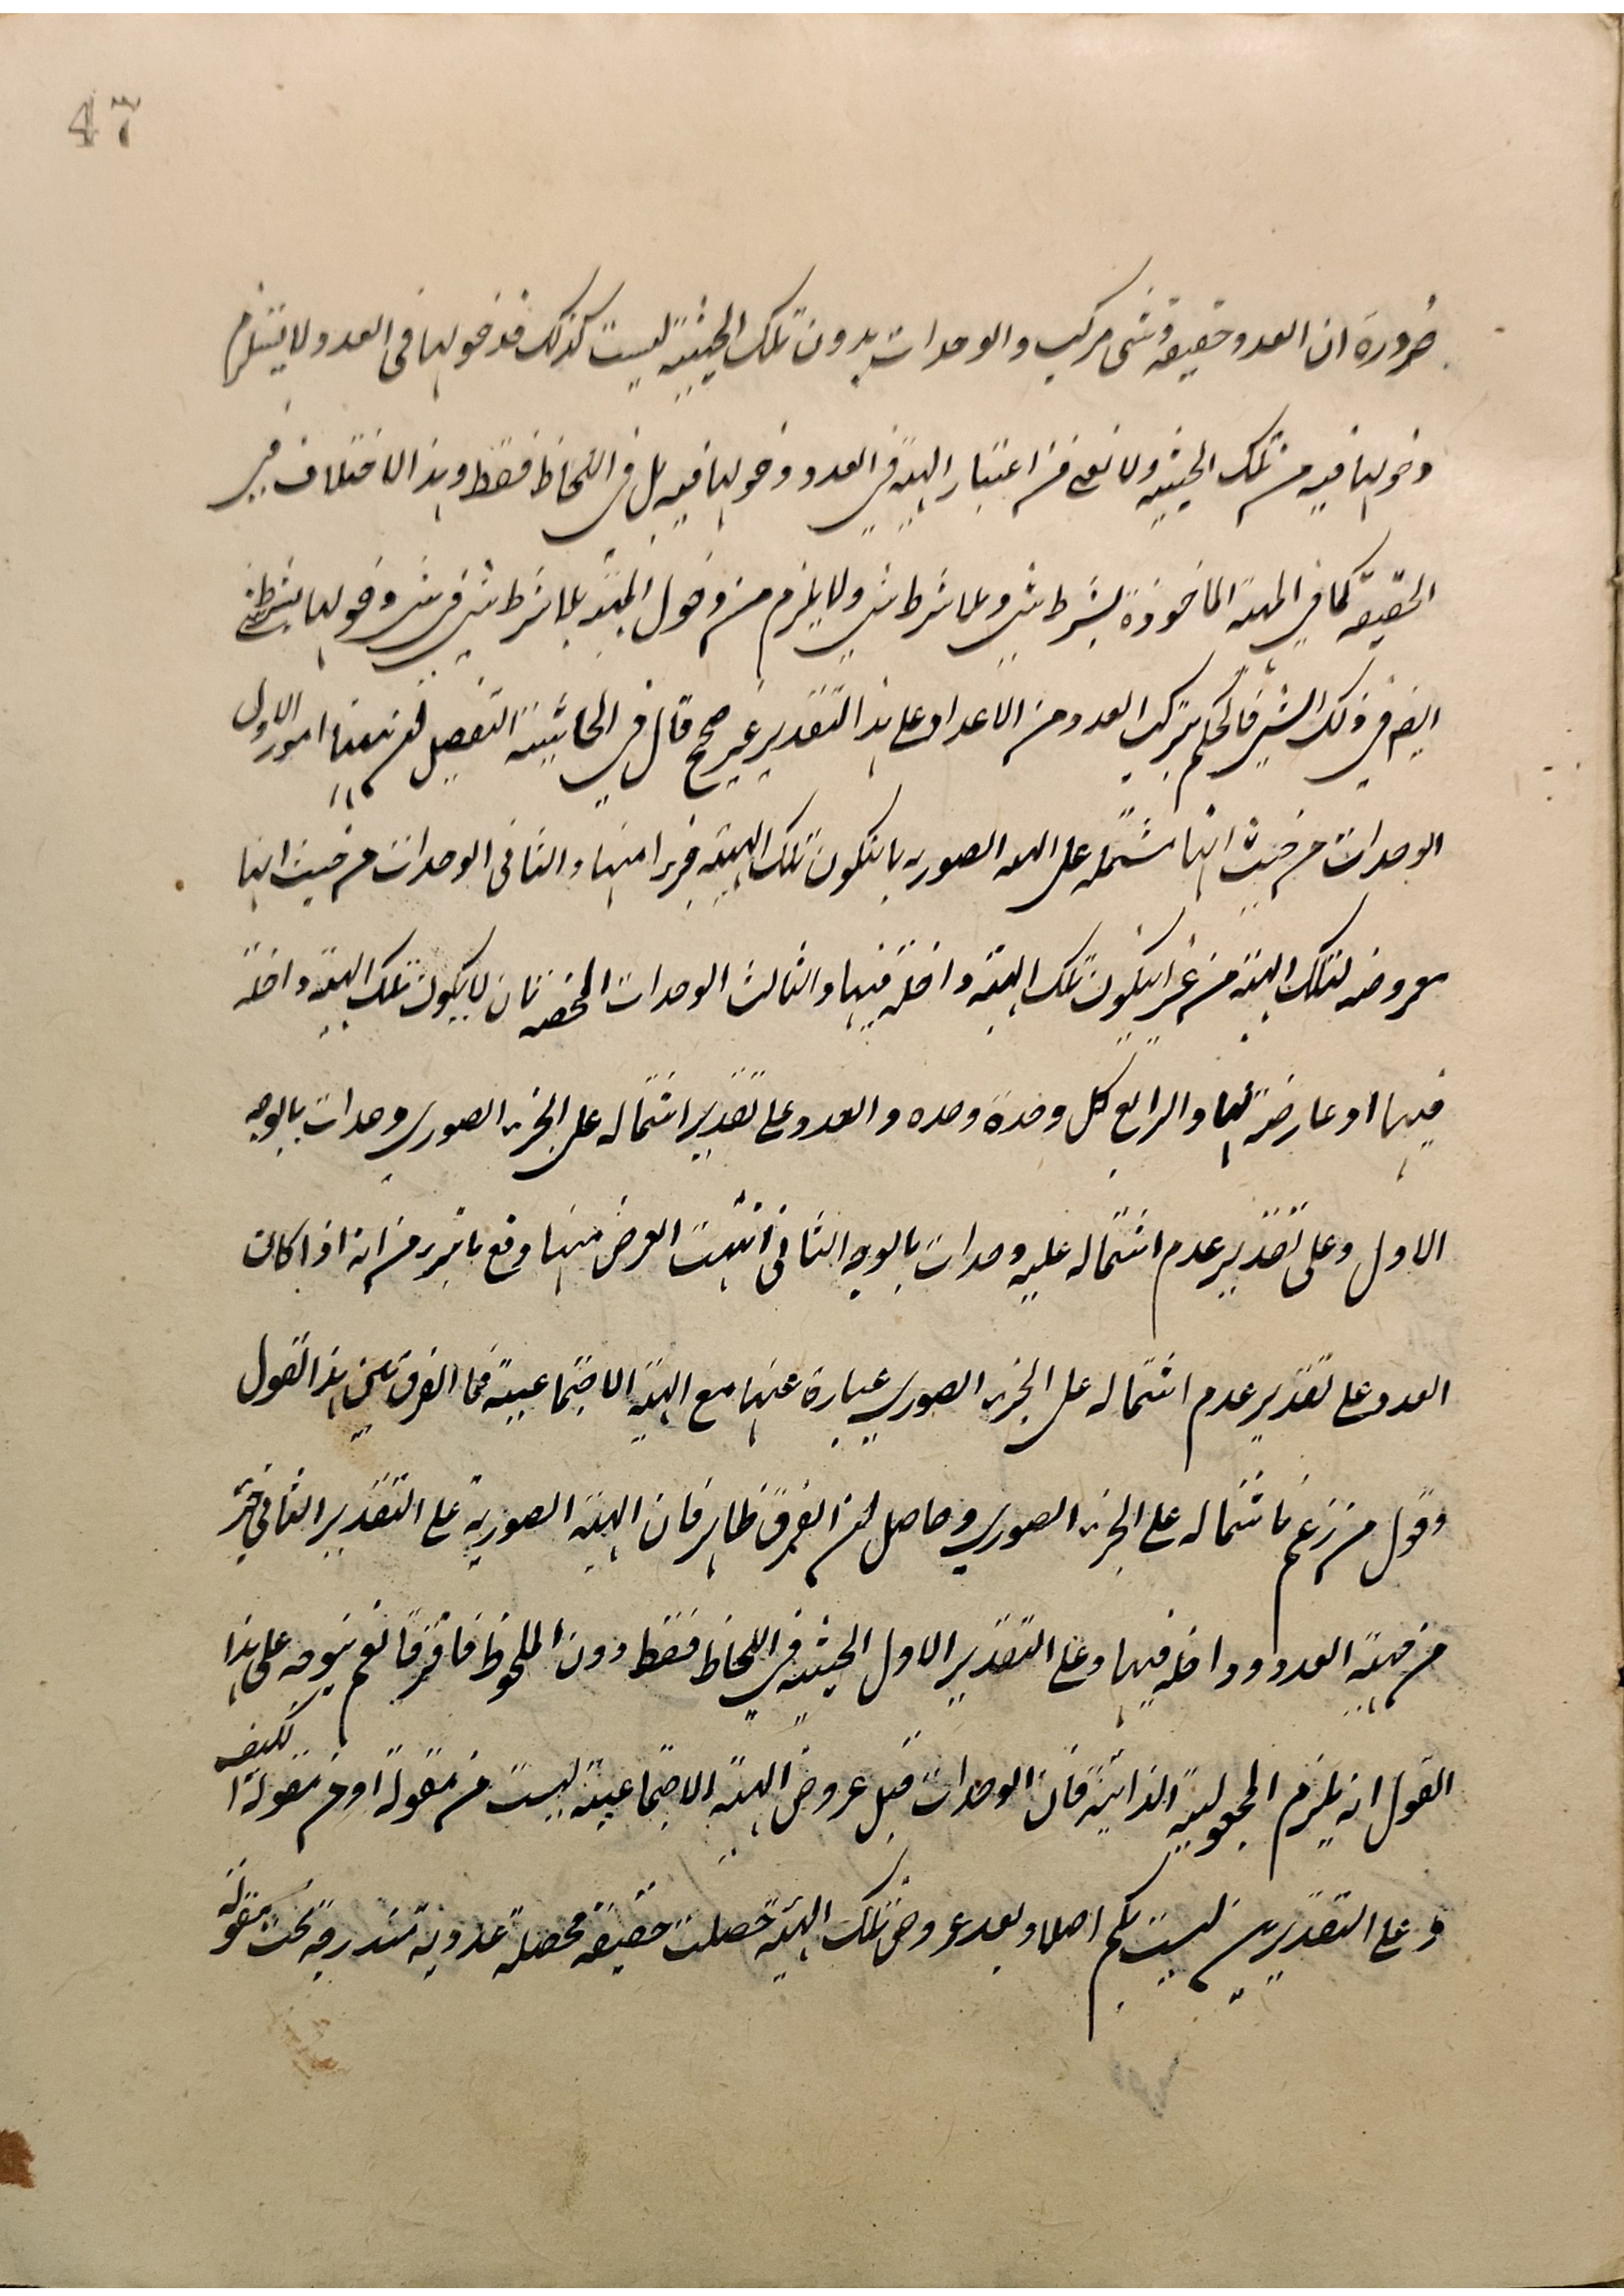 47
ضرورة ان العدد حقيقة وشئ مركب والوحدات بدون تلك الحيثية ليست كذلك فدخولها فى العدد لا يستلزم
دخولها فيه من تلك الحيثية ولا نعنى من اعتبار الهيئة في العدد دخولها فيه بل فى اللحاظ فقط وهذا الاختلاف فى
الحقيقة كما في المهية الماخوذة بشرط شئ وبلا شرط شئ ولا يلزم من دخول المهية بلا شرط شئ في شئ دخولها بشرط شئ
ايضا في ذلك الشئ فالحكم بتركب العدد من الاعداد على هذا التقدير غير صحيح قال في الحاشية التفصيل ان ههنا امور الاول
الوحدات من حيث انها مشتملة على الهيئة الصورية بان تكون تلك الهيئة جزءا منها والثانى الوحدات من حيث انها
معروضة لتلك الهيئة من غير ان يكون تلك الهيئة داخلة فيها والثالث الوحدات المحضة بان لا يكون تلك الهيئة داخلة
فيها او عارضة لها والرابع كل وحدة وحدة والعدد على تقدير اشتماله على الجزء الصوري وحدات بالوجه
الاول وعلى تقدير عدم اشتماله عليه وحدات بالوجه الثانى انتهت الغرض منها دفع ما يرد من انه اذا كانت
العدد على تقدير عدم اشتماله على الجزء الصوري عبارة عنها مع الهيئة الاجتماعية فما الفرق بين هذا القول
وقول من زعم باشتماله على الجزء الصوري وحاصله ان الفرق ظاهر فان الهيئة الصورية على التقدير الثاني جزء
من مهية العدد وداخلة فيها وعلى التقدير الاول الحيثية في اللحاظ فقط دون الملحوظ فافترقا نعم يتوجه على هذا
القول انه يلزم المجعولية الذاتية فان الوحدات قبل عروض الهيئة الاجتماعية ليست من مقولة او من مقولة الكيف
وعلى التقديرين ليست بكم اصلا وبعد عروض تلك الهيئة حصلت حقيقة محصلة عددية مندرجة تحت مقولة